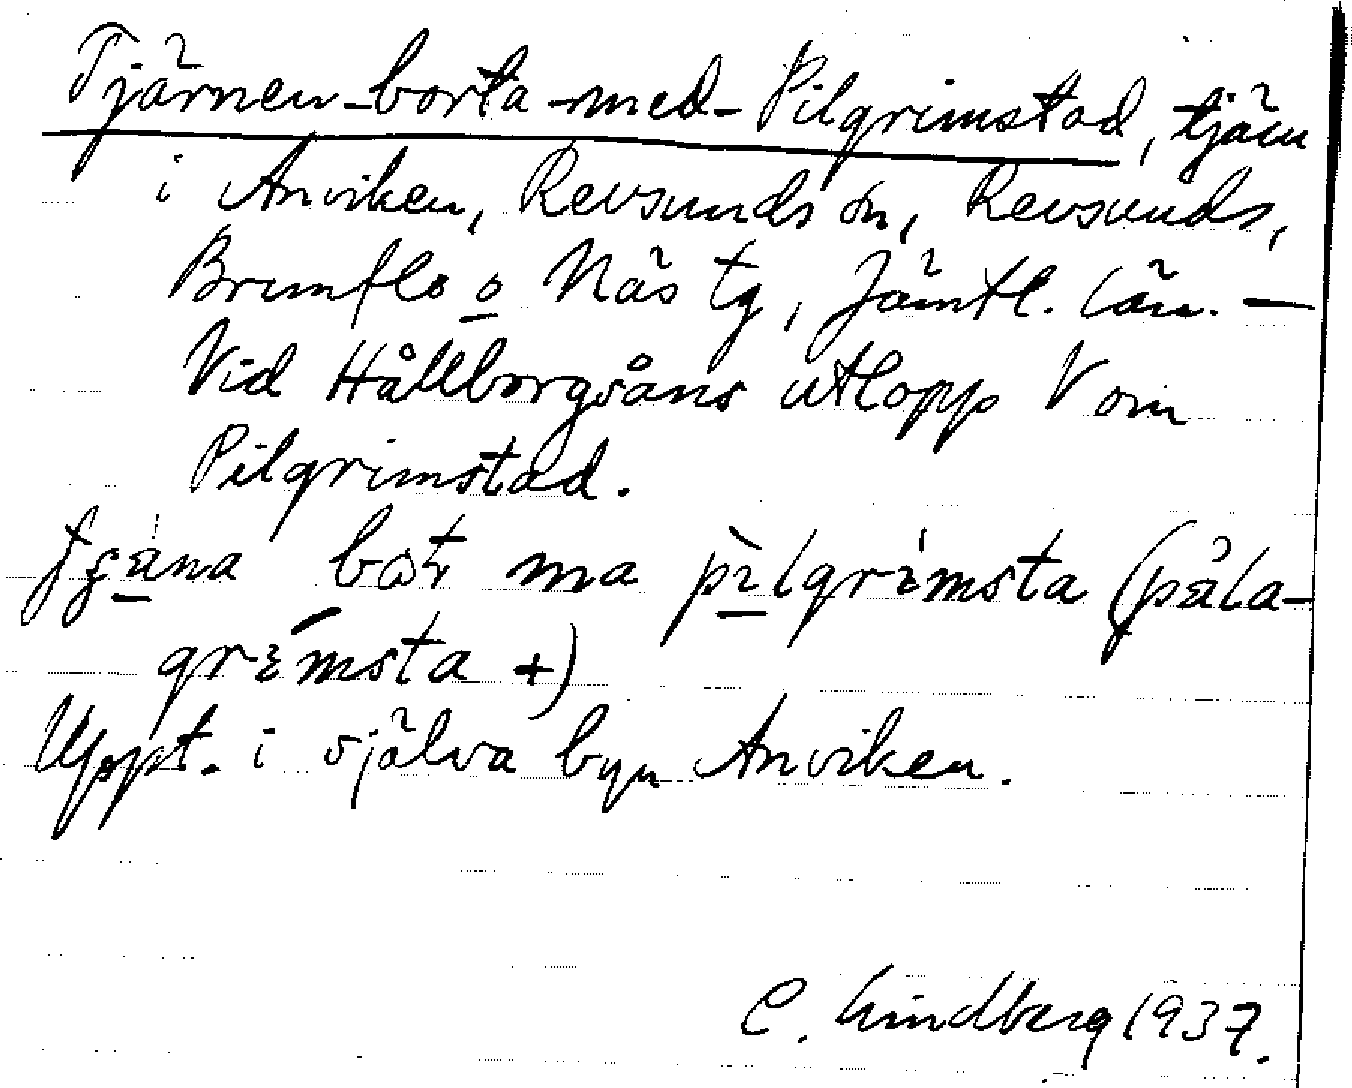 Tjärnen-borta-med-Pilgrimstad, tjärn
i Anviken, Revsunds sn, Revsunds,
Brunflo o Näs tg, Jämtl. län. —
Vid Hållborgsåns utlopp V om
Pilgrimstad.
bor̄t ma pìlgrìmsta (päla-
grimsta +)
Uppt. i själva byn Anviken.
C. Lindberg 1937.